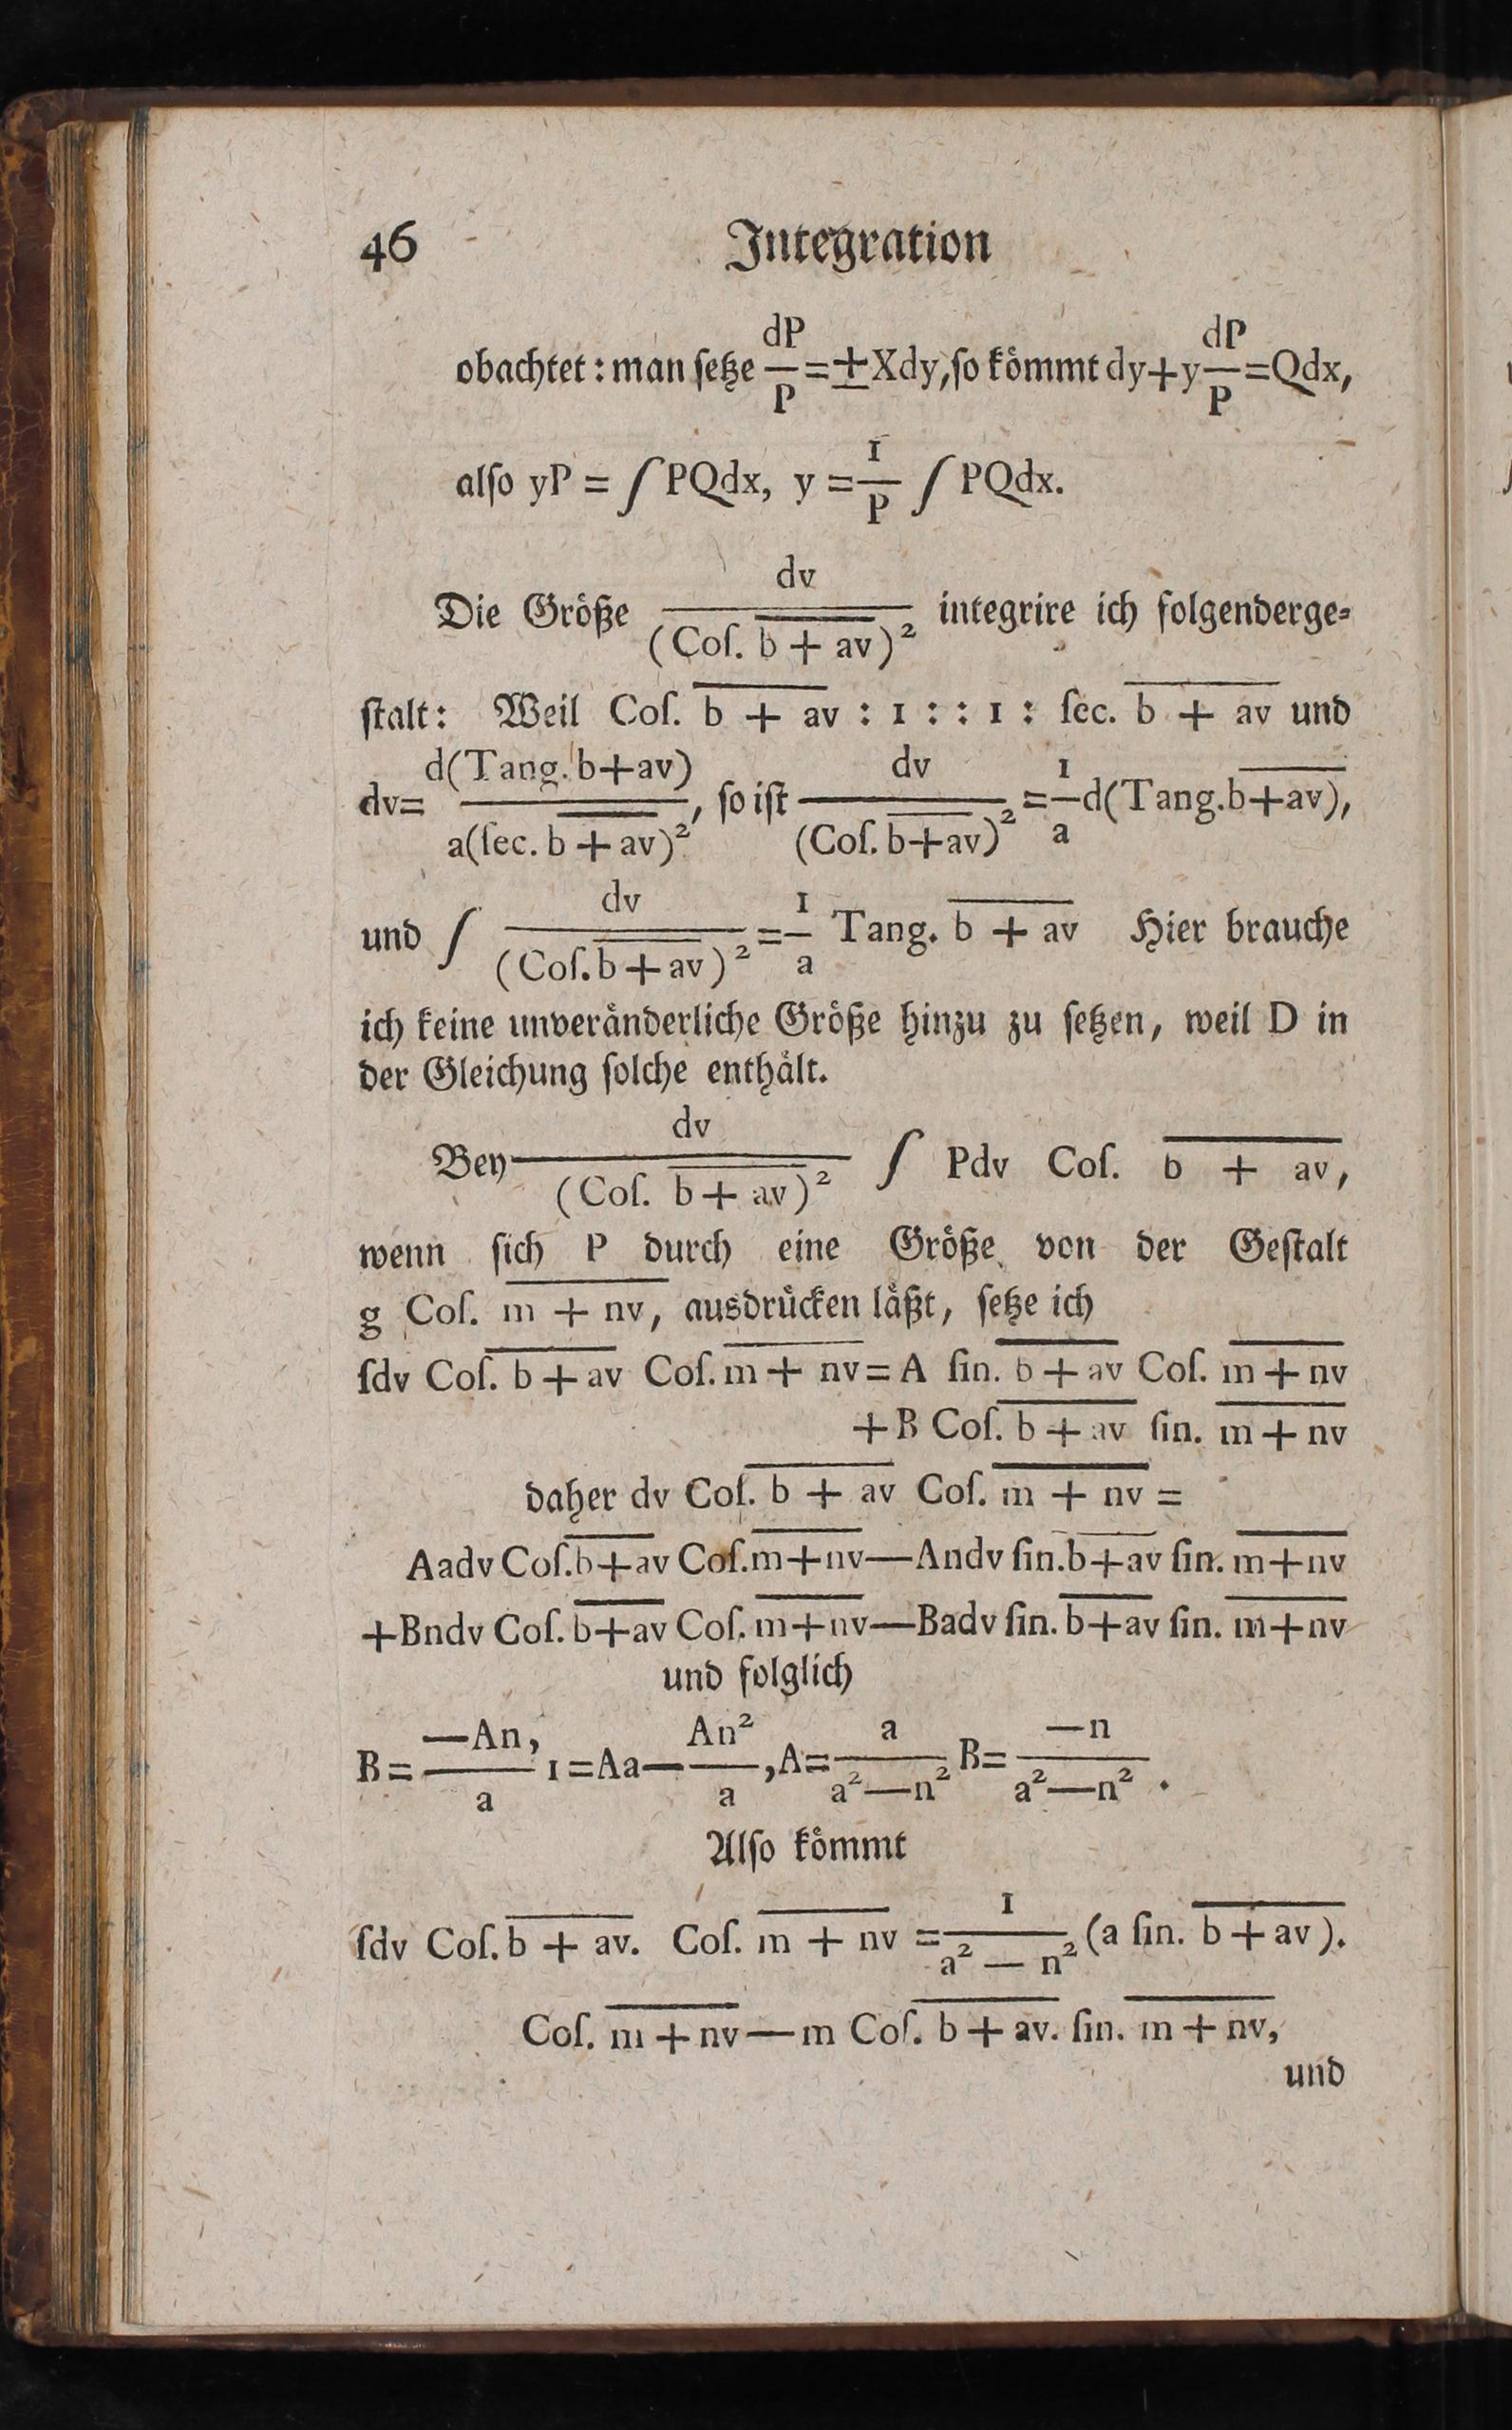 46 Integration
obachtet: man ſetze dP/P=±Xdy, ſo koͤmmt dy+y dP/P=Qdx,
alſo yP = ∫ PQdx, y = 1/P ∫ PQdx.
Die Groͤße dv/(Coſ. b + av)² integrire ich folgenderge⸗
ſtalt: Weil Coſ. b + av : 1 : : 1 : ſec. b + av und
dv= d(Tang. b+av)/a(ſec. b + av)², ſo iſt dv/(Coſ. b+av)² = 1/a d(Tang. b+av),
und ∫ dv/(Coſ. b + av)² = 1/a Tang. b + av Hier brauche
ich keine unveraͤnderliche Groͤße hinzu zu ſetzen, weil D in
der Gleichung ſolche enthaͤlt.
Bey dv/(Coſ. b + av)² ∫ Pdv Coſ. b + av,
wenn ſich P durch eine Groͤße von der Geſtalt
g Coſ. m + nv, ausdruͤcken laͤßt, ſetze ich
ſdv Coſ. b + av Coſ. m + nv = A ſin. b + av Coſ. m + nv
+ B Coſ. b + av ſin. m + nv
daher dv Coſ. b + av Coſ. m + nv =
Aadv Coſ. b+av Coſ. m+nv—Andv ſin. b+av ſin. m+nv
+Bndv Coſ. b+av Coſ. m+nv—Badv ſin. b+av ſin. m+nv
und folglich
B = —An,/a 1 = Aa— An²/a, A= a/a²—n² B= —n/a²—n².
Alſo koͤmmt
ſdv Coſ. b + av. Coſ. m + nv = 1/a² — n² (a ſin. b + av).
Coſ. m + nv — m Coſ. b + av. ſin. m + nv,
und